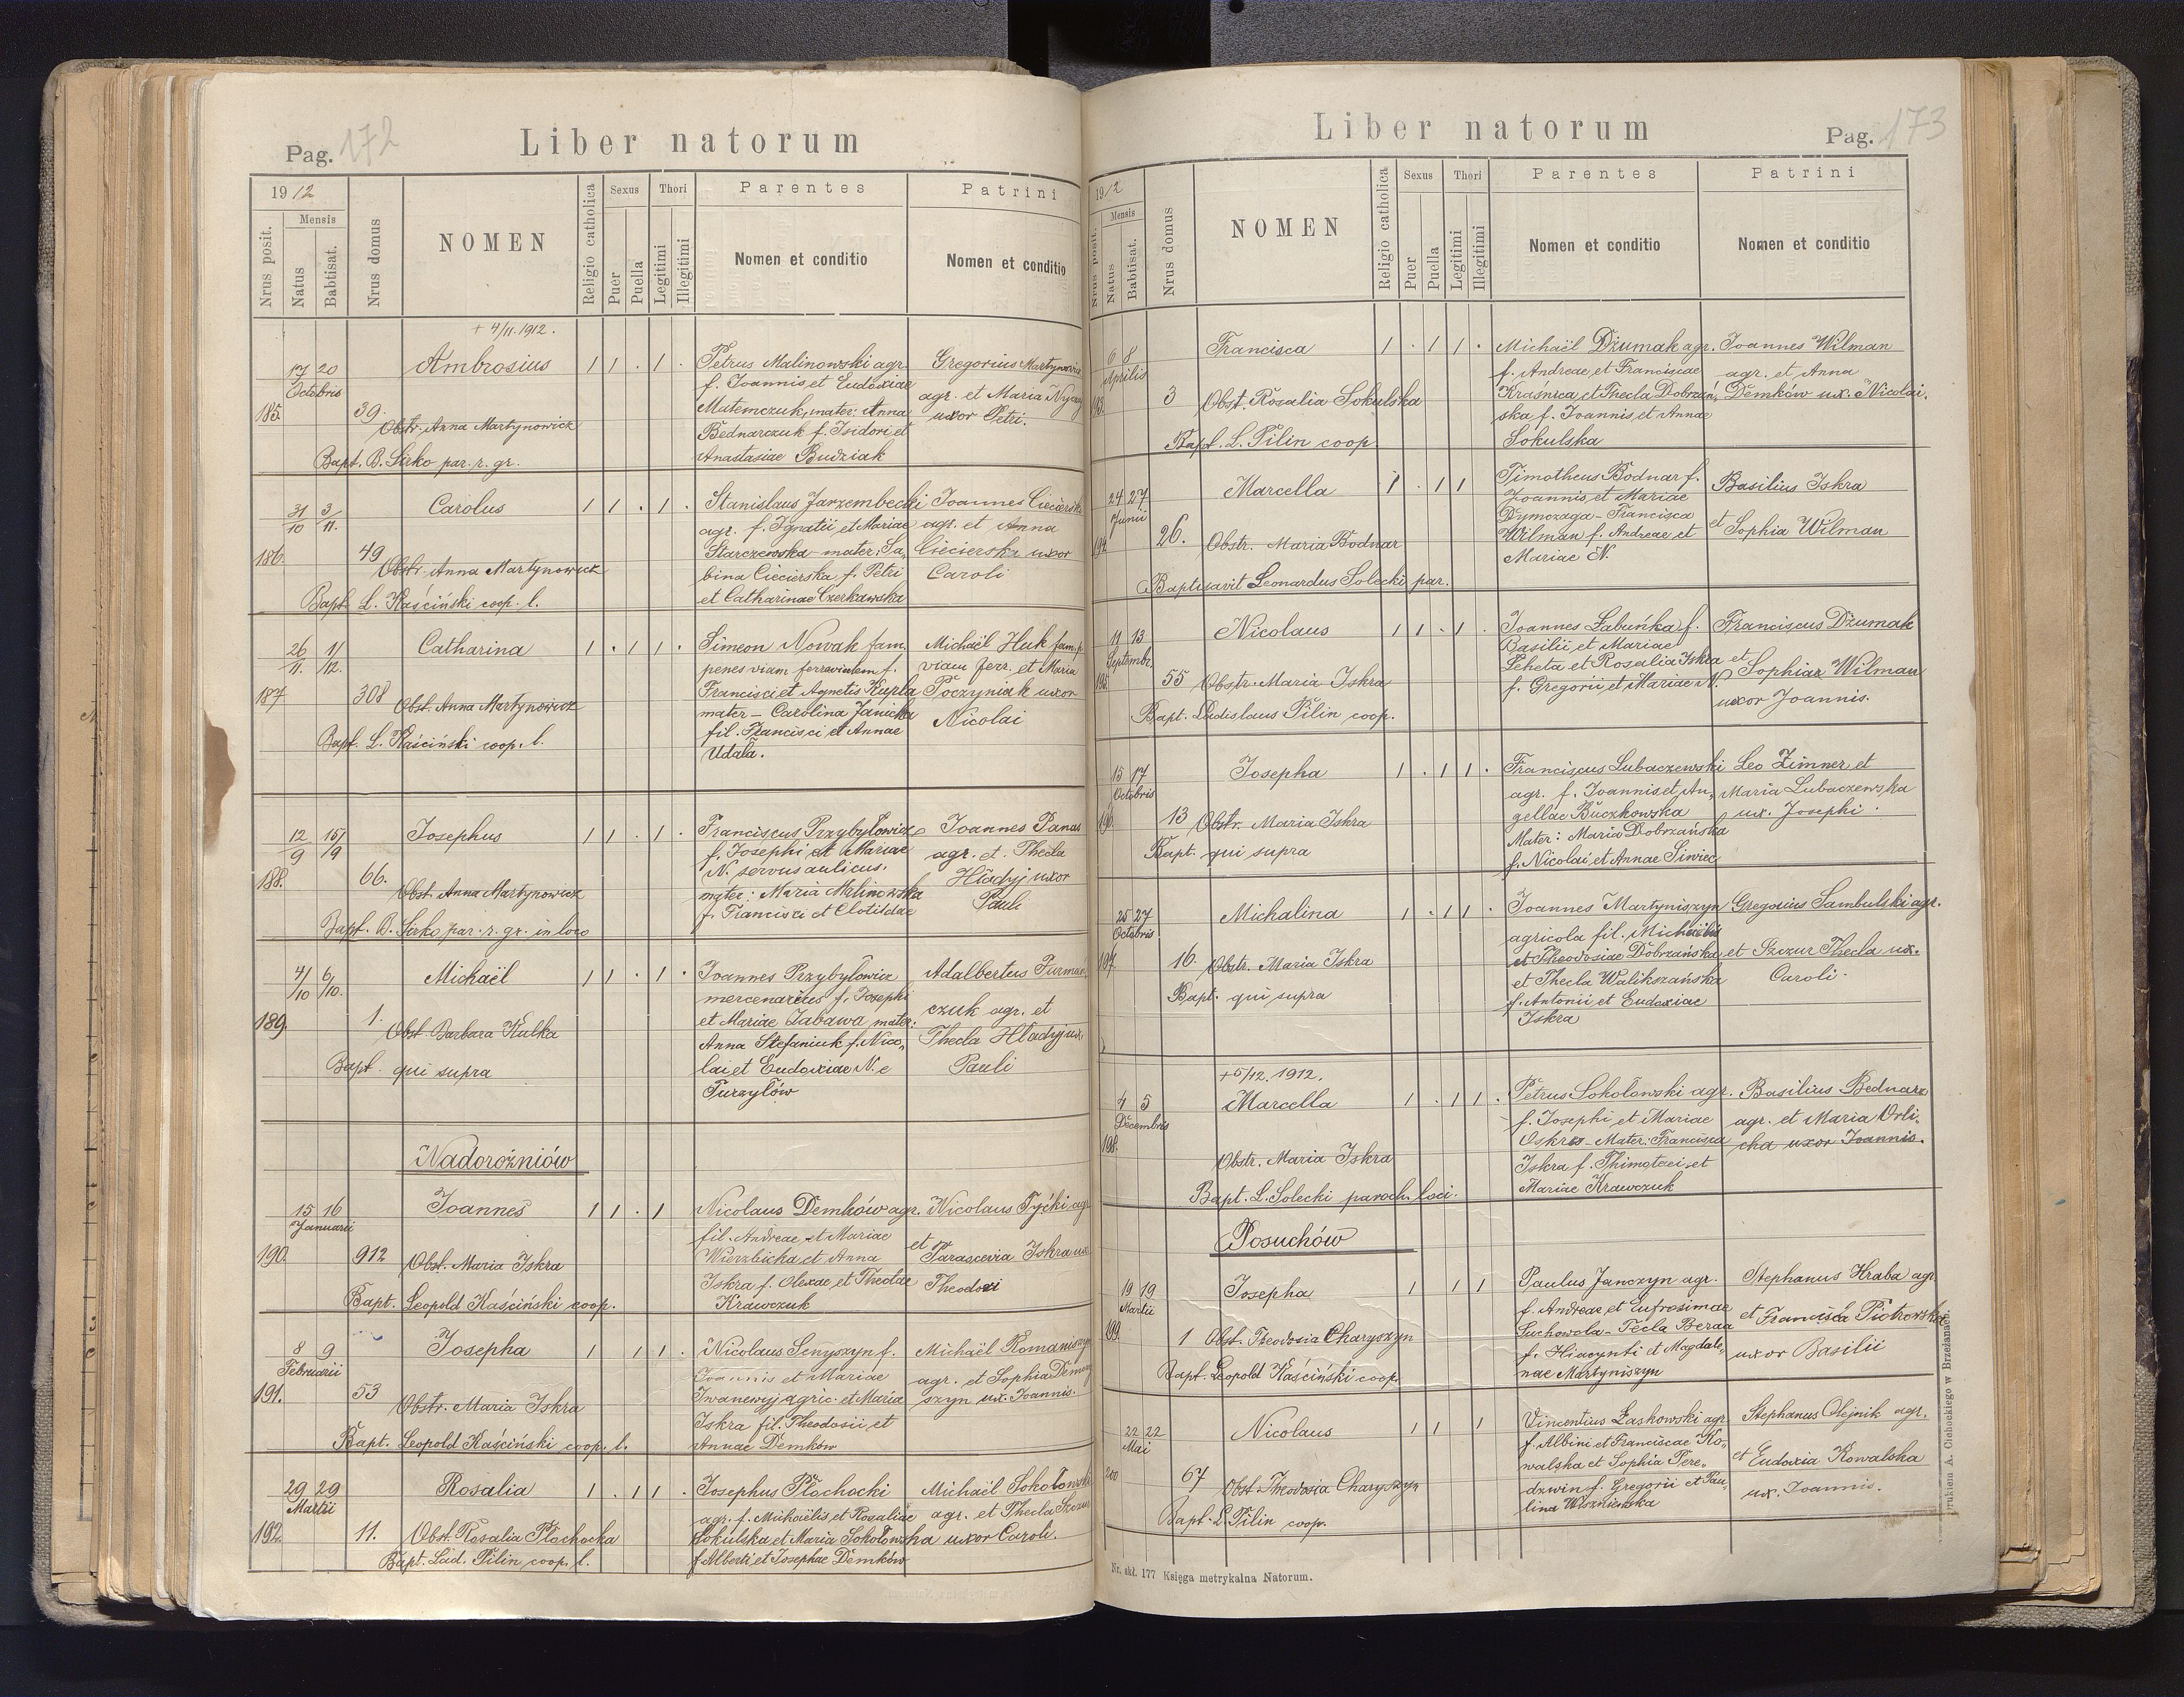 Pag. 172
Liber natorum
1912
Nrus posit.
Mensis
Natus
Babtisat.
Nrus domus
NOMEN
Religio catholica
Sexus
Puer
Puella
Thori
Legitimi
Illegitimi
Parentes
Nomen et conditio
Patrini
Nomen et conditio
+ 4/11.1912.
185.
17 20
Octobris
39.
Ambrosius
Obstr. Anna Martynowicz
Bapt. B. Sirko par. r. gr.
1 1 . 1 .
Petrus Malinowski agr.
f. Joannis et Eudoxiae
Matemczuk, mater: Anna
Bednarczuk f. Isidori et
Anastasiae Budziak
Gregorius Martynowicz
agr. et Maria
uxor Petri.
186.
31/10 3/11.
49
Carolus
Obstr. Anna Martynowicz
Bapt L. Kaściński coop. l.
1 1 . 1 .
Stanislaus Jarzembecki
agr. f. Ignatii et Mariae
Starczewska mater: Sa,
bina Ciecierska f. Petri
et Catharinae Czerkawska
Joannes Ciecierski
agr. et Anna
Ciecierska uxor
Caroli
187.
26/11. 1/12.
308
Catharina
Obst. Anna Martynowicz
Bapt. L. Kaściński coop. l.
1 . 1 1 .
Simeon Nowak fam.
penes viam ferrovialem f.
Francisci et Agnetis Kupla
mater - Carolina Janicka
fil. Francisci et Annae
Udała.
Michaël Huk fam. p.
viam ferr. et Maria
Poczyniak uxor
Nicolai
188.
12/9 15/9
66.
Josephus
Obst. Anna Martynowicz
Bapt. B. Sirko par. r. gr. in loco
1 1 . 1 .
Franciscus Przybyłowicz
f. Josephi et Mariae
N. servus aulicus.
mater: Maria Malinowska
f. Francisci et Clotildae
Joannes Panas
agr. et Thecla
Hładyj uxor
Pauli
189.
4/10 6/10.
1.
Michaël
Obst. Barbara Kulka
Bapt. qui supra
1 1 . 1 .
Joannes Przybyłowicz
mercenarius f. Josephi
et Mariae Zabawa mater:
Anna Stefaniuk f. Nico,,
lai et Eudoxiae N. e
Turzyłów
Adalbertus Furman
czuk agr. et
Thecla Hładyj ux.
Pauli
Nadorożniów
190.
15 16
Januarii
912
Joannes
Obst. Maria Iskra
Bapt. Leopold Kaściński coop.
1 1 . 1
Nicolaus Demków agr.
fil. Andreae et Mariae
Wierzbicka et Anna
Iskra f. Olexae et Theclae
Krawczuk
Nicolaus Tyćki agr
et
Parascevia Iskra ux.
Theodosi
191.
8 9
Februarii
53
Josepha
Obstr. Maria Iskra
Bapt. Leopold Kaściński coop. l.
1 1 1 .
Nicolaus Senyszyn f.
Joannis et Mariae
Iwanewyj agric. et Maria
Iskra fil. Theodosii et
Annae Demków
Michaël Romaniszyn
agr. et Sophia
szyn ux. Joannis.
192.
29 29
Martii
11.
Rosalia
Obst. Rosalia Płochocka
Bapt. Lad. Pilin coop. l.
1 . 1 1 .
Josephus Płochocki
agr. f. Michaëlis et Rosaliae
Sokulska et Maria Sokołowska
f. Alberti et Josephae Demków
Michaël Sokołowski
agr. et Thecla Szczur
uxor Caroli.
Liber natorum
Pag. 173
1912
Nrus posit.
Mensis
Natus
Babtisat.
Nrus domus
NOMEN
Religio catholica
Sexus
Puer
Puella
Thori
Legitimi
Illegitimi
Parentes
Nomen et conditio
Patrini
Nomen et conditio
193.
6 8
Aprilis
3
Francisca
Obst. Rosalia Sokulska
Bapt. L. Pilin coop.
1 . 1 1 .
Michaël Dżumak agr.
f. Andreae et Franciscae
Kraśnica, et Thecla Dobrzań,
ska f. Joannis et Annae
Sokulska
Joannes Wilman
agr. et Anna
Demków ux. Nicolai.
194.
24 27
Junii
26.
Marcella
Obstr. Maria Bodnar
Baptisavit Leonardus Solecki par.
1 . 1 1
Timotheus Bodnar f.
Joannis et Mariae
Dymczaga - Francisca
Wilman f. Andreae et
Mariae N.
Basilius Iskra
et Sophia Wilman
195.
11 13
Septembr.
55
Nicolaus
Obstr. Maria Iskra
Bapt. Ladislaus Pilin coop.
1 1 . 1 .
Joannes Łabuńka f.
Basilii et Mariae
Leheta et Rosalia Iskra
f. Gregorii et Mariae N.
Franciscus Dżumak
et Sophiae Wilman
uxor Joannis.
196.
15 17
Octobris
13
Josepha
Obstr. Maria Iskra
Bapt. qui supra
1 . 1 1 .
Franciscus Lubaczewski
agr. f. Joannis et An,,
gellae Buczkowska
Mater: Maria Dobrzańska
f. Nicolai et Annae Siwiec
Leo Zimner et
Maria Lubaczewska
ux. Josephi.
197.
25 27
Octobris
16.
Michalina
Obstr. Maria Iskra
Bapt. qui supra
1 . 1 1 .
Joannes Martyniszyn
agricola fil. Michaëlis
et Theodosiae Dobrzańska
et Thecla Walikszańska
f. Antonii et Eudoxiae
Iskra
Gregorius Sambulski agr.
et Szczur Thecla ux.
Caroli.
+5/12. 1912.
198.
4 5
Decembris
Marcella
Obstr. Maria Iskra
Bapt. L. Solecki paroch. loci.
1 . 1 1 .
Petrus Sokołowski agr.
f. Josephi et Mariae
Oskres - Mater: Francisca
Iskra f. Thimotei et
Mariae Krawczuk
Basilius Bednarz
agr. et Maria Orli,
cka uxor Joannis.
Posuchów
199.
19 19
Martii
1
Josepha
Obst. Theodosia Charyszyn
Bapt. Leopold Kaściński coop.
1 1 1
Paulus Janczyn agr.
f. Andreae et Eufrosimae
Suchowola - Tecla Beraa
f. Hiacynti et Magdale,,
nae Martyniszyn
Stephanus Hraba agr.
et Francisca Piotrowska
uxor Basilii
200
22 22
Mai
67
Nicolaus
Obst. Theodosia Charyszyn
Bapt. L. Pilin coop.
1 1 1
Vincentius Łaskowski agr
f. Albini et Franciscae Ko,,
walska et Sophia Tere,,
dzwin f. Gregorii et Pau,
lina Wiszniewska
Stephanus Olejnik agr.
et Eudoxia Kowalska
ux. Joannis.
Nr. skł. 177 Księga metrykalna Natorum.
Drukiem A. Cichockiego w Brzeżanach.